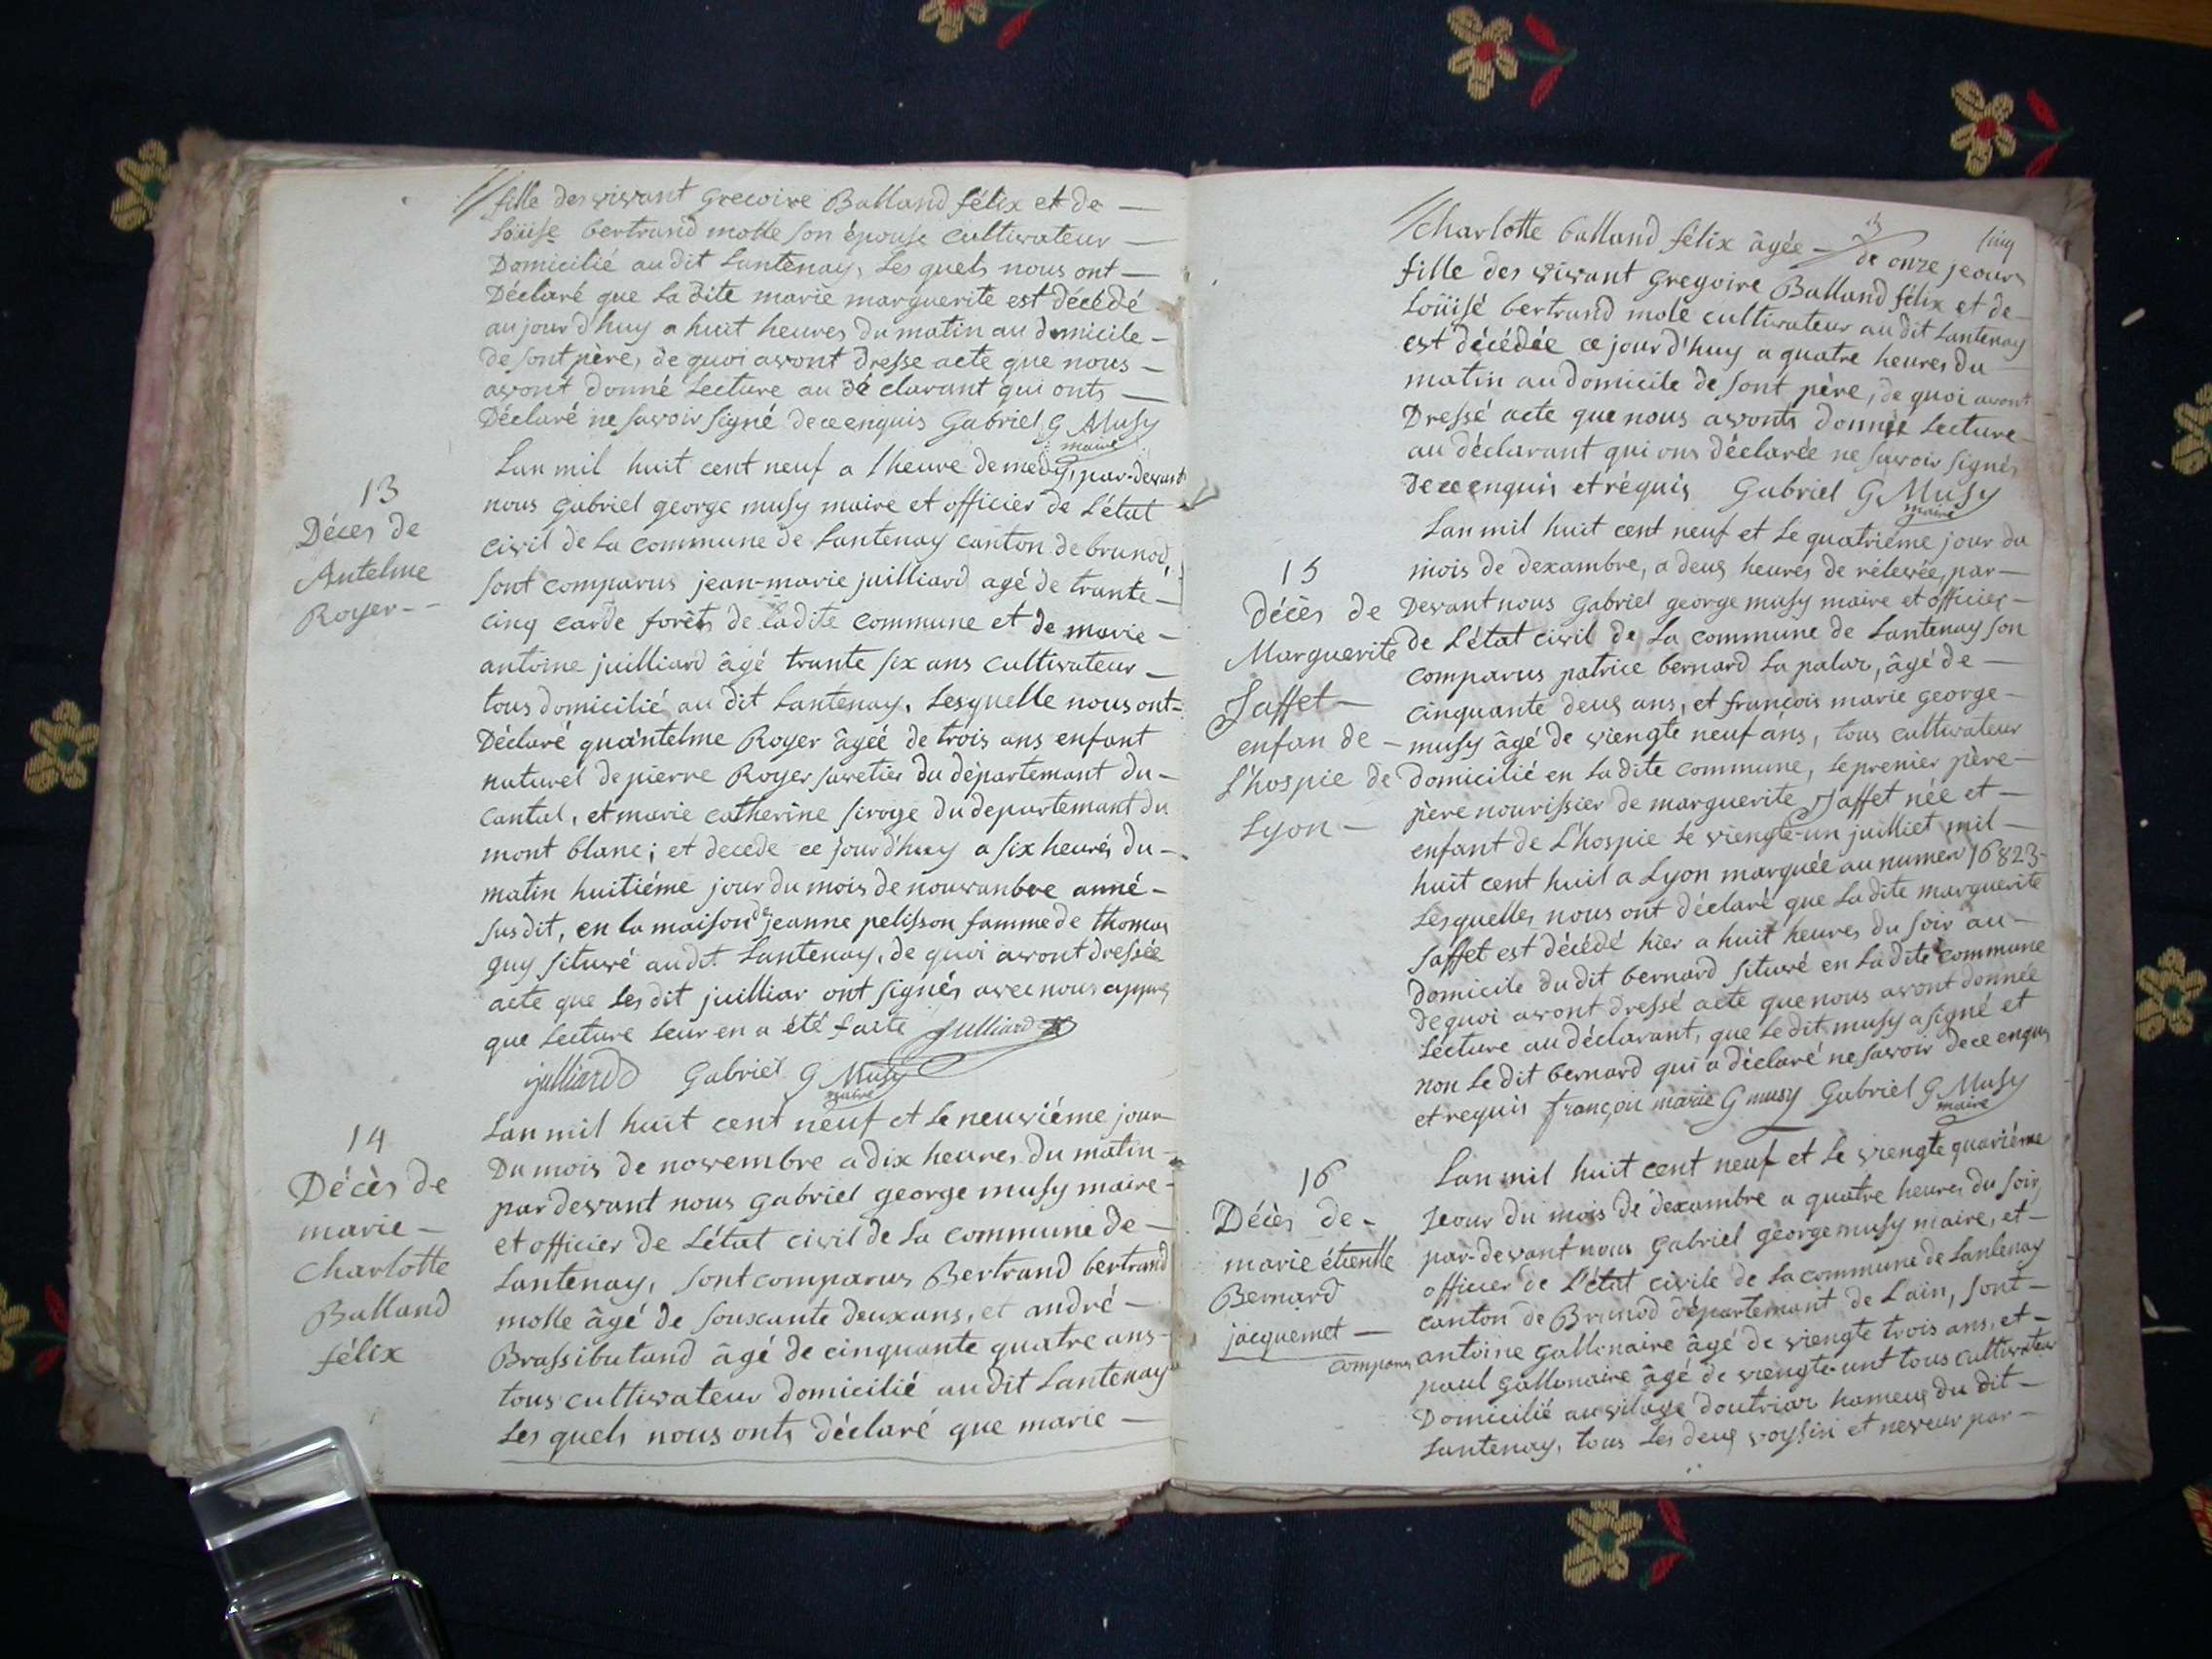 fille des vivant Grecoire Balland félix et de —
Loüise bertrand molle son épouse cultivateur —
Domicilié au dit Lantenay, Les quels nous ont —
Déclaré que La dite marie marguerite est décédé
aujourd huy a huit heures du matin au domicile —
de sont père, de quoi avont dresse acte que nous —
avont donné Lecture au dé clarant qui onts —
Déclaré ne savoir signé de ce enquis Gabriel G Musy
maire
13
Déces de
Antelme
Royer - -
Lan mil huit cent neuf a lheure de medy, par-devant
nous Gabriel george musy maire et officier de L'état
civil de La commune de Lantenay canton de brunod,
sont comparus jean-marie juilliard agé de trante —
cinq garde forêts de Ladite commune et de marie —
antoine juilliard âgé trante six ans cultivateur —
tous domicilié au dit Lantenay, Lesquelle nous ont -
Déclaré qu'antelme Royer âgée de trois ans enfant
naturel de pierre Royer savetier du département du -
cantal, et marie catherine siroge du departemant du
mont blanc; et decede ce jourd'huy a six heures du -
matin huitiéme jour du mois de nouvanbre anné -
susdit, en la maison de jeanne pelisson famme de thomas
guy situvé au dit Lantenay, de quoi avont dressée
acte que Les dit juilliar ont signés avec nous appres
que Lecture Leur en a été faite Julliard
julliard Gabriel G Musy
maire
14
Décès de
marie —
Charlotte
Balland
félix
Lan mil huit cent neuf et Le neuviéme jour
Du mois de novembre a dix heures du matin -
par devant nous Gabriel george musy maire -
et officier de L'état civil de La commune de —
Lantenay, sont comparus Bertrand bertrand
molle âgé de souxante deux ans, et andré —
Brassibutand âgé de cinquante quatre ans -
tous cultivateur domicilié au dit Lantenay
Les quels nous onts déclaré que marie —
cinq
Charlotte balland félix âgée — de onze jeours
fille des vivant Gregoire Balland félix et de -
Loüisé bertrand mole cultivateur au dit Lantenay
est décédée ce jour d'huy a quatre heures du
matin au domicile de sont père, de quoi avont
Dressé acte que nous avonts donnée Lecture -
au déclarant qui ons déclarée ne savoir signés
de ce enquis et réquis Gabriel G Musy
maire
15
Décès de
Marguerite
Jaffet —
enfan de —
L'hospie de
Lyon —
Lan mil huit cent neuf et Le quatriéme jour du
mois de dexambre, a deux heures de rélevée, par —
Devant nous Gabriel george musy maire et officier —
de L'état civil de La commune de Lantenay son
comparus patrice bernard La palar, âgé de —
cinquante deux ans, et françois marie george —
musy âgé de viengte neuf áns, tous cultivateur
domicilié en Ladite commune, Le premier père —
père nourissier de marguerite Jaffet née et —
enfant de L'hospie Le viengte-un juilliet mil —
huit cent huil a Lyon marquée au numero 16823 -
Lesquelles nous ont déclaré que Ladite marguerite
Jaffet est décédé hier a huit heures du soir au —
domicile du dit bernard situvé en Ladite commune
de quoi avont dressé acte que nous avont donnée
Lecture au déclarant, que Ledit musy a signé et
non Le dit bernard qui a déclaré ne savoir de ce enquis
et requis françois marie G musy Gabriel G Musy
maire
16
Décès de -
marie étienlle
Bernard
jacquemet —
Lan mil huit cent neuf et Le viengte quariéme
Jeour du mois de dexambre a quatre heures du soir,
par-devant nous Gabriel george musy maire, et —
officier de L'état civile de La commune de Lantenay
canton de Brunod départemant de Lain, sont —
comparus antoine gallonaire âgé de viengte trois ans, et —
paul gallonaire âgé de viengte-unt tous cultivateur
Domicilié au vilage doutriar hameux du dit —
Lantenay, tous Les deux voysin et neveur par —